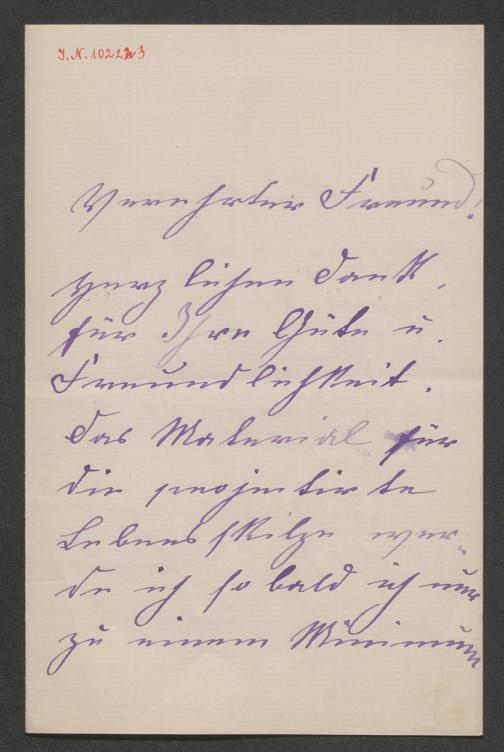 I.N. 102223
Verehrter Freund!
Herzlichen Dank,
für Ihre Güte u.
Freundlichkeit.
Das Material für
die projectirte
Lebensskitze wer-
de ich sobald ich nur
zu einem Minimum